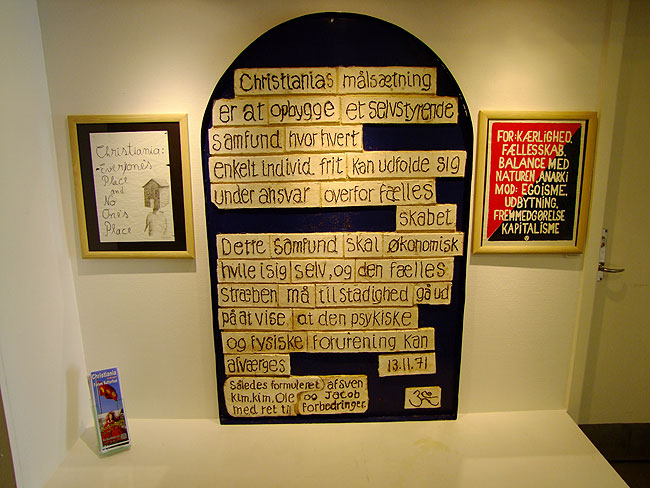 Christiania:
Everyone's
Place
and
No
One's
Place
Christianias målsætning
er at opbygge et selvstyrende
samfund hvor hvert
enkelt individ frit kan udfolde sig
under ansvar overfor fælles
skabet
Dette samfund skal økonomisk
hvile i sig selv, og den fælles
stræben må til stadighed gå ud
på at vise, at den psykiske
og fysiske forurening kan
afværges 13.11.71
Således formuleret af sven
Kim, Kim, Ole og Jacob
med ret til forbedringer.
FOR: KÆRLIGHED,
FÆLLESSKAB,
BALANCE MED
NATUREN, ANARKI
MOD: EGOISME,
UDBYTNING,
FREMMEDGØRELSE
KAPITALISME
Christiania